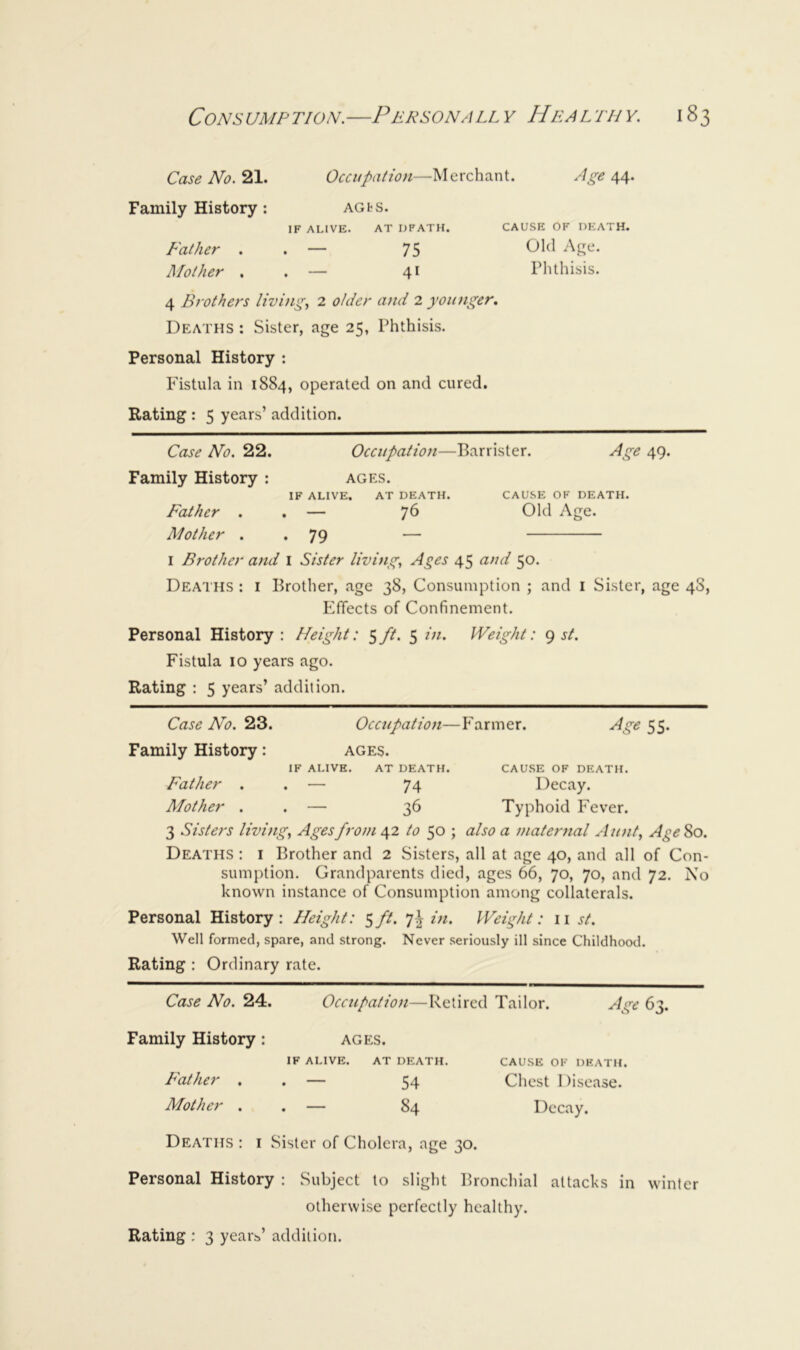 CONSUMPTION.—PERSONALLY HEALTHY. 183
Case No. 21. Occupation—Merchant. Age 44.
Family History : AGES.
IF ALIVE. AT DEATH. CAUSE OF DEATH.
Father . . — 75 Old Age.
Mother . . — 41 Phthisis.
4 Brothers living, 2 older and 2 younger.
DEATHS : Sister, age 25, Phthisis.
Personal History :
Fistula in 1884, operated on and cured.
Rating : 5 years' addition.
Case No. 22. Occupation—Barrister. Age 49.
Family History : AGES.
IF ALIVE. AT DEATH. CAUSE OF DEATH.
Father . . — 76 Old Age.
Mother . . 79 — ———
1 Brother and 1 Sister living, Ages 45 and 50.
DEATHS : 1 Brother, age 38, Consumption ; and 1 Sister, age 48,
Effects of Confinement.
Personal History : Height: 5 ft. 5 in. Weight: 9 st.
Fistula 10 years ago.
Rating : 5 years' addition.
Case No. 23. Occupation—Farmer. Age 55.
Family History : AGES.
IF ALIVE. AT DEATH. CAUSE OF DEATH.
Father . . — 74 Decay.
Mother . . — 36 Typhoid Fever.
3 Sisters living, Ages from 42 to 50 ; also a maternal Aunt, Age 80.
DEATHS : 1 Brother and 2 Sisters, all at age 40, and all of Con-
sumption. Grandparents died, ages 66, 70, 70, and 72. No
known instance of Consumption among collaterals.
Personal History : Height: 5 ft. 7½ in. Weight: 11 st.
Well formed, spare, and strong. Never seriously ill since Childhood.
Rating : Ordinary rate.
Case No. 24. Occupation—Retired Tailor. Age 63.
Family History : AGES.
IF ALIVE. AT DEATH. CAUSE OF DEATH.
Father . . — 54 Chest Disease.
Mother . . — 84 Decay.
DEATHS : 1 Sister of Cholera, age 30.
Personal History : Subject to slight Bronchial attacks in winter
otherwise perfectly healthy.
Rating : 3 years' addition.